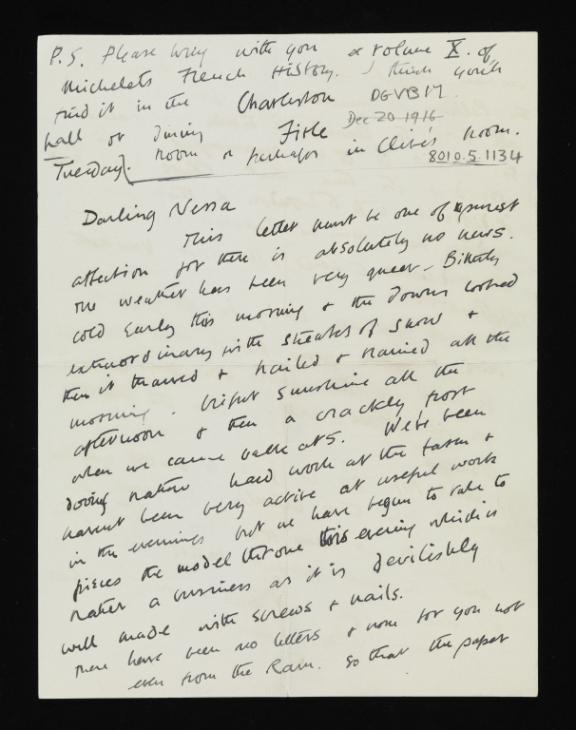 P.S. Please bring with you a volume X. of
Michelets French History. I think you'll
find it in the Charleston DGVB17
hall or dining Firle Dec 20 1916
Tuesday. room or perhaps in Clive's room.
8010.5.1134
Darling Nessa
This letter must be one of purest
affection for there is absolutely no news.
The weather has been very queer - Bitterly
cold early this morning & the downs looked
extraordinary with streaks of snow &
then it thawed & hailed & rained all the
morning. bright sunshine all the
afternoon & then a crackly frost
when we came back at 5. We've been
doing rather hard work at the farm &
havent been very active at useful work
in the evenings but we have begun to take to
pieces the model throne this evening which is
rather a business as it is devilishly
well made with screws & nails.
There have been no letters & none for you not
even from the Ram. So that the paper